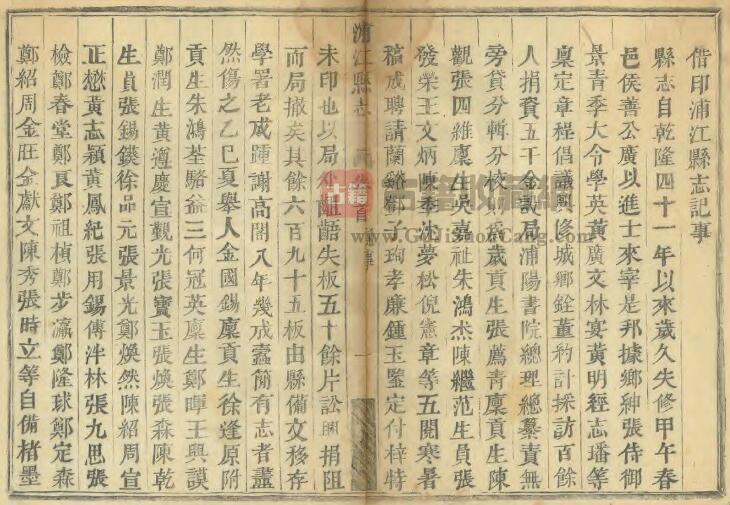 偕印浦江縣志記事
縣志自乾隆四十一年以來歲久失修甲午春
邑侯善公廣以進士來宰是邦據鄉紳張侍御
景青季大令學英黃廣文林宴黃明經志璠等
稟定章程倡議興修城鄉銓董約計採訪百餘
人捐資五千金設局浦陽書院總理總纂責無
旁貸分輯分校則爲歲貢生張薦青廩貢生陳
觀張四維廩生吳嘉祉朱鴻杰陳繼范生員張
發榮王文炳陳季沐夢松倪憲章等五閱寒暑
稿成聘請蘭谿鄧子珣孝廉鍾玉鑒定付梓特
浦江縣志
未印也以局外阻齬失板五十餘片訟興捐阻
而局撤矣其餘六百九十五板由縣備文移存
學署老成踵謝高閣八年幾成蠹簡有志者衋
然傷之乙巳夏舉人金國錫廩貢生徐逢原附
貢生朱鴻荃駱益三何冠英廩生鄭暉王興謨
鄭潤生黃遵慶宣觀光張寶玉張煥張森陳乾
生員張錫鍈徐品元張景光鄭煥然陳紹周宣
正懋黃志穎黃鳳紀張用錫傅泮林張九思張
檢鄭春堂鄭良鄭祖楨鄭步瀛鄭隆球鄭定森
鄭紹周金旺金獻文陳秀張時立等自備楮墨
古籍
www.GuJiShouCang.com